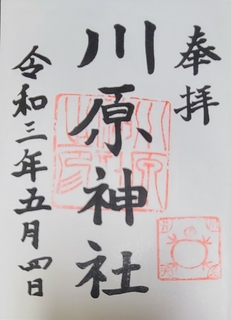 奉拝
川原神社
令和三年五月四日